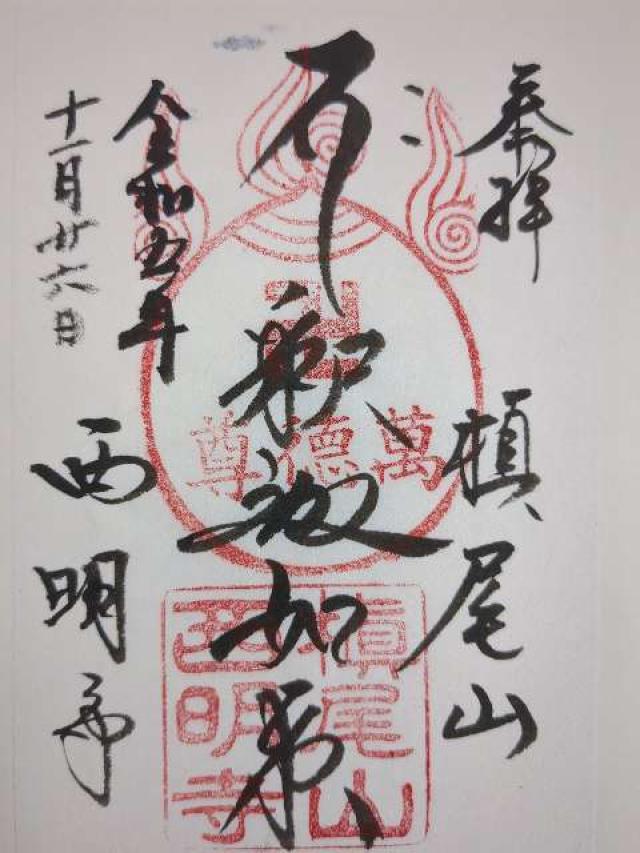 奉拝
槙尾山
釈迦如来
令和五年
十一月廿六日
西明寺
卍
萬德尊
槙尾山
西明寺